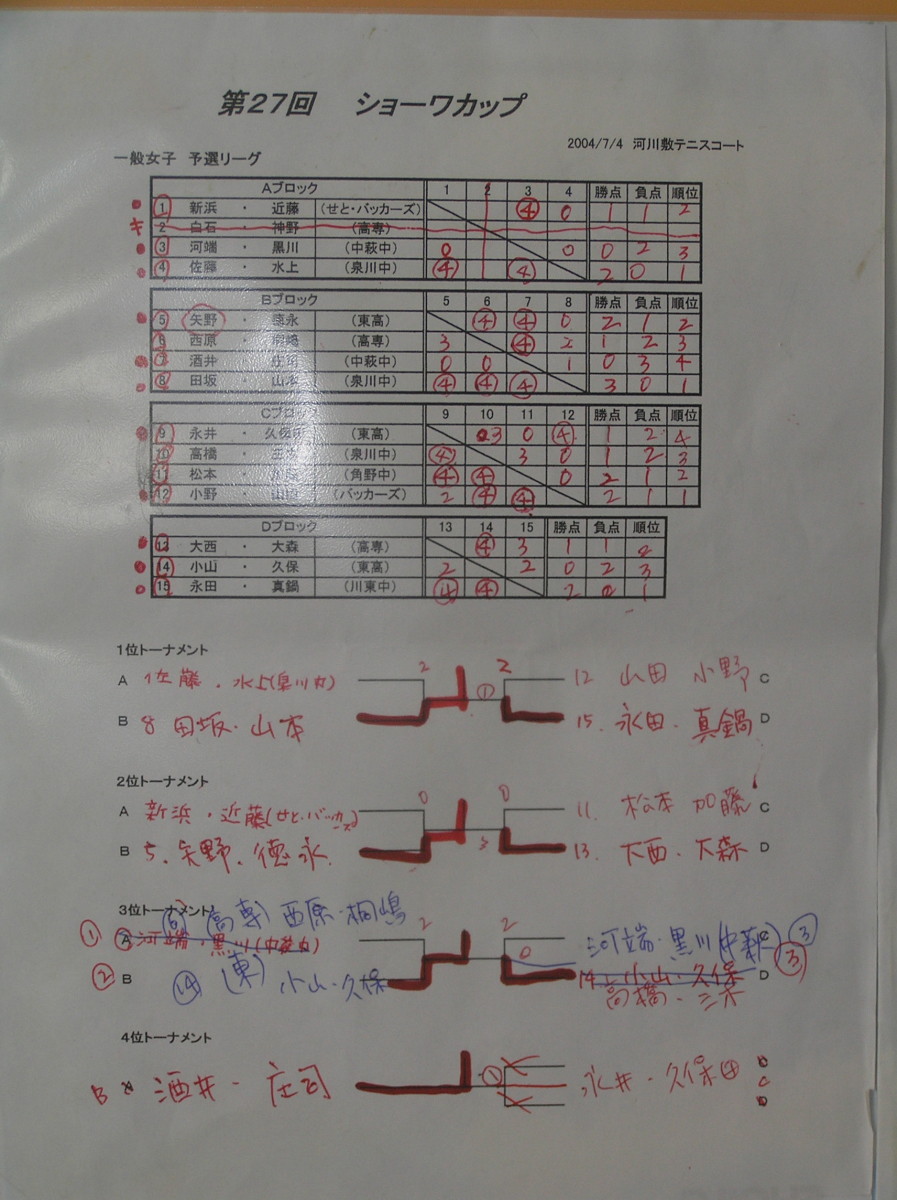 第27回 ショーワカップ
2004/7/4 河川敷テニスコート
一般女子 予選リーグ
Aブロック 1 2 3 4 勝点 負点 順位
1 新浜 ・ 近藤 (せと・バッカーズ) ④ 0 1 1 2
キ 2 白石 ・ 神野 (高専)
3 河端 ・ 黒川 (中萩中) 0 0 0 2 3
4 佐藤 ・ 水上 (泉川中) ④ ④ 2 0 1
Bブロック 5 6 7 8 勝点 負点 順位
5 矢野 ・ 徳永 (東高) ④ ④ 0 2 1 2
6 西原 ・ (高専) 3 ④ 2 1 2 3
7 酒井 ・ 庄司 (中萩中) 0 0 1 0 3 4
8 田坂 ・ 山本 (泉川中) ④ ④ ④ 3 0 1
Cブロック 9 10 11 12 勝点 負点 順位
9 永井 ・ 久保田 (東高) 3 0 ④ 1 2 4
10 高橋 ・ (泉川中) ④ 3 0 1 2 3
11 松本 ・ 加藤 (角野中) ④ ④ 0 2 1 2
12 小野 ・ 山田 (バッカーズ) 2 ④ ④ 2 1 1
Dブロック 13 14 15 勝点 負点 順位
13 大西 ・ 大森 (高専) ④ 3 1 1 2
14 小山 ・ 久保 (東高) 2 2 0 2 3
15 永田 ・ 真鍋 (川東中) ④ ④ 2 0 1
1位トーナメント
A 佐藤・水上(泉川中) 2 ① 2 12 山田 小野 C
B 8 田坂・山本 15. 永田・真鍋 D
2位トーナメント
A 新浜・近藤(せと・バッカーズ) 0 0 11. 松本 加藤 C
B 5. 矢野・徳永 3 13. 大西・大森 D
3位トーナメント
⑥ (高専) 西原・桐嶋
① A 河端・黒川(中萩中) 2 2 河端・黒川(中萩) C ③
② B ⑭ (東) 小山・久保 0 14 小山・久保 D ③
高橋・三木
4位トーナメント
B 酒井・庄司 ① 永井・久保田 C